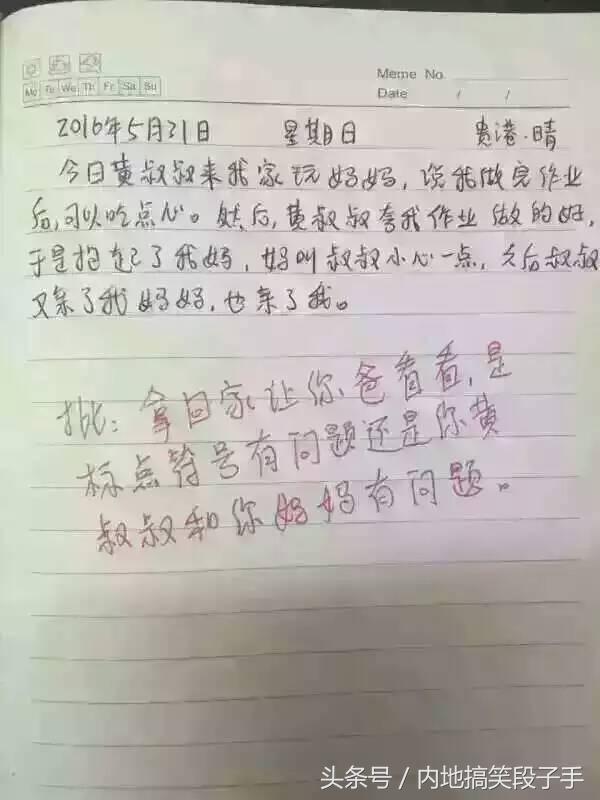 Meme No.
Mo Tu We Th Fr Sa Su
Date / /
2016年5月21日 星期日 贵港·晴
今日黄叔叔来我家玩妈妈，说我做完作业
后，可以吃点心。然后，黄叔叔夸我作业做的好，
于是抱起了我妈，妈叫叔叔小心一点，之后叔叔
又亲了我妈妈，也亲了我。
批：拿回家让你爸看看，是
标点符号有问题还是你黄
叔叔和你妈妈有问题。
头条号／内地搞笑段子手